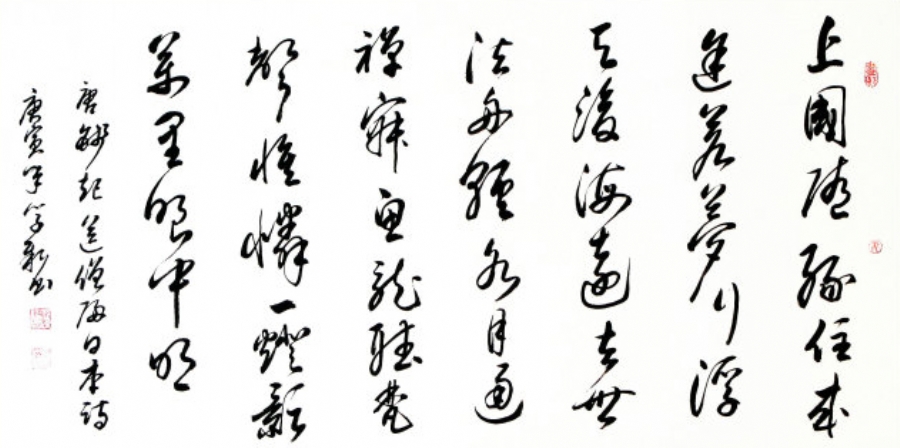 上國随緣住来
途若夢行浮
天滄海遠去世
法舟輕水月通
禪寂魚龍聽梵
聲惟憐一燈影
萬里眼中明
唐錢起送僧歸日本詩
庚寅年